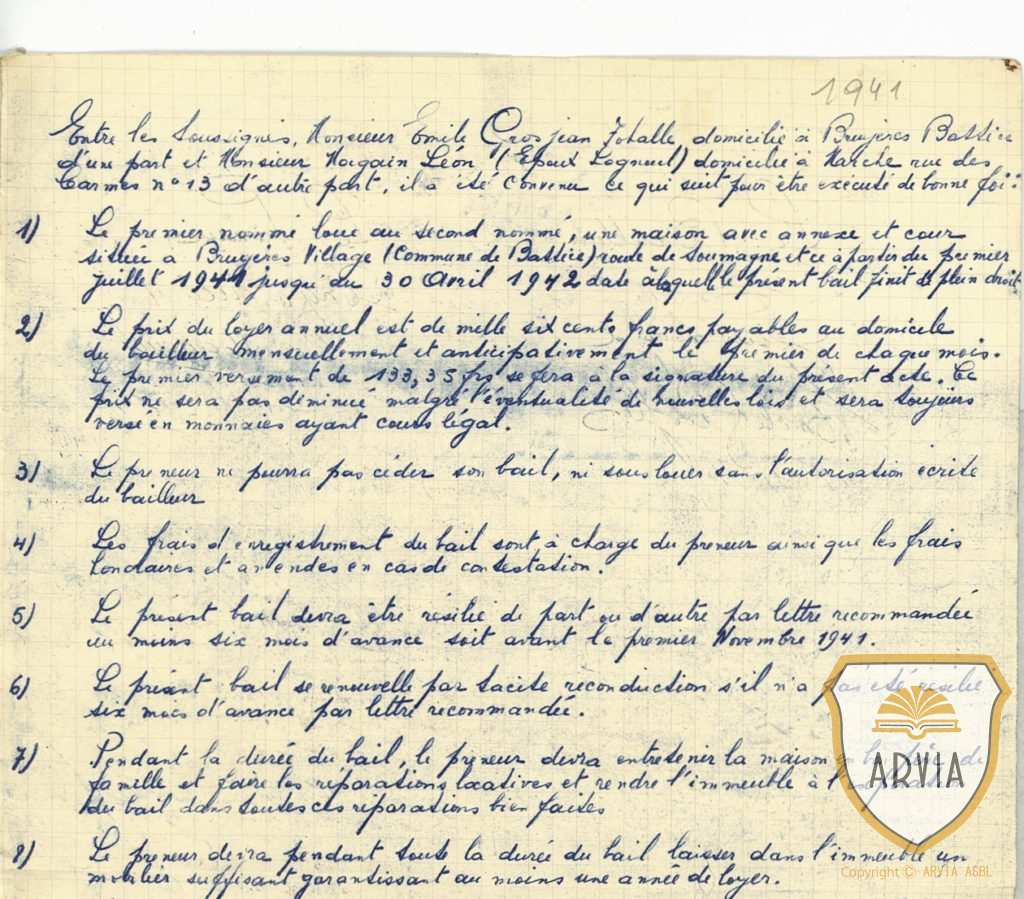 1941
Entre les Soussignés, Monsieur Emile Grosjean Fohalle, domicilié à Bruyères Battice
d'une part et Monsieur Léon (Epoux Lognoul) domicilié à rue des
Carmes n° 13 d'autre part, il a été convenu ce qui suit pour être exécuté de bonne foi:
1) Le premier nommé loue au second nommé, une maison avec annexe et cour
située à Bruyères Village (Commune de Battice) route de Soumagne et ce à partir du premier
Juillet 1941 jusqu'au 30 Avril 1942 date à laquelle le présent bail finit de plein droit
2) Le prix du loyer annuel est de mille six cents francs payables au domicile
du bailleur mensuellement et anticipativement le premier de chaque mois.
Le premier versement de 133,35 frs se fera à la signature du présent acte. Ce
prix ne sera pas diminué malgré l'éventualité de nouvelles lois et sera toujours
versé en monnaies ayant cours légal.
3) Le preneur ne pourra pas céder son bail, ni sous louer sans l'autorisation écrite
du bailleur
4) Les frais d'enregistrement du bail sont à charge du preneur ainsi que les frais
et amendes en cas de contestation.
5) Le présent bail devra être résilié de part ou d'autre par lettre recommandée
au moins six mois d'avance soit avant le premier Novembre 1941.
6) Le présent bail se renouvelle par tacite reconduction s'il n'a pas été résilié
six mois d'avance par lettre recommandée.
7) Pendant la durée du bail, le preneur devra entretenir la maison en bon père de
famille et faire les réparations locatives et rendre l'immeuble à l'expiration
du bail dans toutes ces réparations bien faites
8) Le preneur devra pendant toute la durée du bail laisser dans l'immeuble un
mobilier suffisant garantissant au moins une année de loyer.
ARVIA
Copyright © ARVIA ASBL